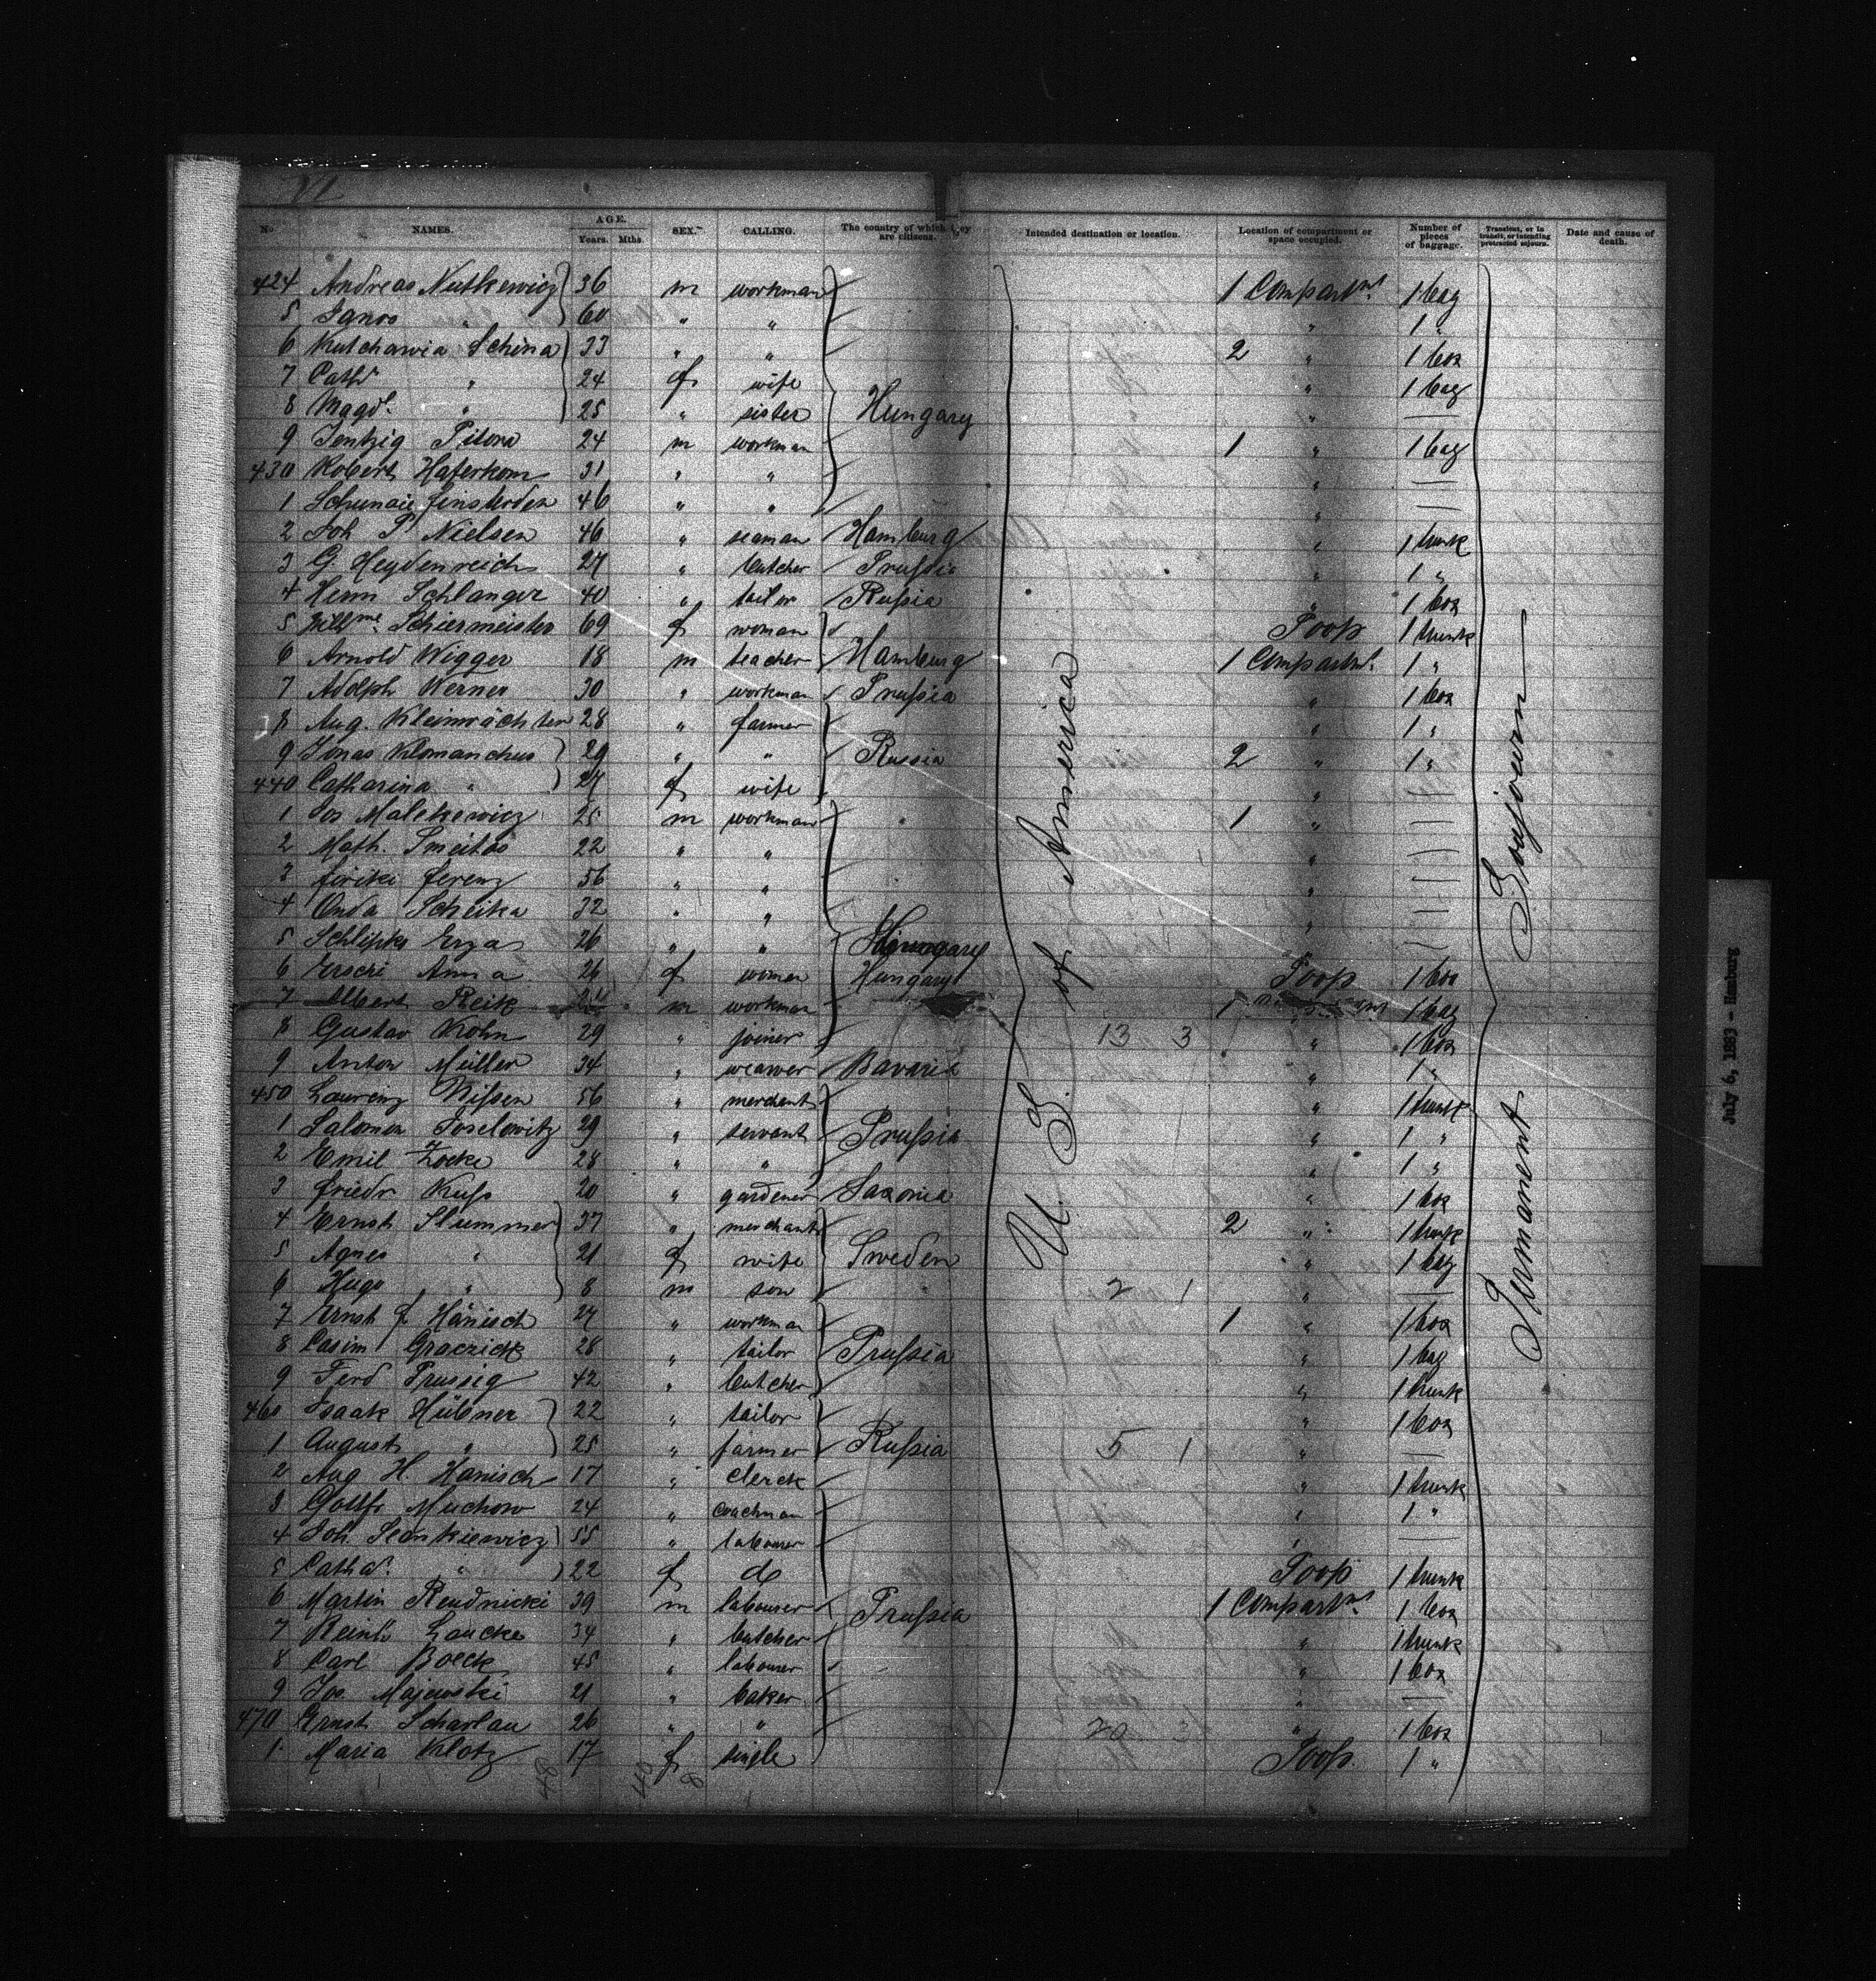 VI
No. NAMES. AGE. Years. Mths. SEX. CALLING. The country of which they are citizens. Intended destination or location. Location of compartment or space occupied. Number of pieces of baggage. Transient, or in transit, or intending protracted sojourn. Date and cause of death.
424 Andreas Nutkewicz 36 m workman 1 Compartmt. 1 bag
5 Janos " 60 " " " 1 "
6 Kutchawia Schina 33 " " 2 " 1 box
7 Cathr " 24 f wife " 1 bag
8 Magdl. " 25 " sister Hungary " —
9 Jentzig Pilora 24 m workman 1 " 1 bag
430 Robert Haferkorn 31 " " " —
1 46 " " " —
2 Joh P Nielsen 46 " seaman Hamburg " 1 trunk
3 G. Heydenreich 27 " butcher Prussia " 1 "
4 Herm Schlanger 40 " tailor Russia " 1 box
5 Willme. Schiermeister 69 f woman Poop 1 trunk
6 Arnold Wigger 18 m teacher Hamburg 1 Compartmt. 1 "
7 Adolph Werner 30 " workman Prussia " 1 box
8 Aug. Kleinwächter 28 " farmer " 1 "
9 Jonas Klomanchus 29 " " Russia 2 " 1 "
440 Catharina " 27 f wife "
1 Jos Malekewicz 25 m workman 1 " —
2 Math. Smeitas 22 " " " —
3 Jöriki Ferenz 56 " " " —
4 Onda Scheika 32 " " " —
5 Schlipko Erza 26 " " Hungary " —
6 Erscri Anna 26 f woman Hungary Poop 1 box
7 Albert Reik m workman 1 1 bag
8 Gustav Kohn 29 " joiner 13 3 " 1 box
9 Anton Müller 34 " weawer Bavaria " 1 "
450 Laurenz Nissen 56 " merchant " 1 trunk
1 Salomon Joselowitz 29 " servant Prussia " 1 "
2 Emil Zocke 28 " " " 1 "
3 Friedr Kuss 20 " gardener Saxonia " 1 box
4 Ernst Slummer 37 " merchant 2 " 1 trunk
5 Agnes " 21 f wife Sweden " 1 bag
6 Hugo " 8 m son 2 1 " —
7 Ernst F Hänisch 27 " workman 1 " 1 box
8 Casim Graczick 28 " tailor Prussia " 1 bag
9 Ferd Prussig 42 " butcher " 1 trunk
460 Isaak Hübner 22 " tailor " 1 box
1 August " 25 " farmer Russia 5 1 " —
2 Aug H. Hänisch 17 " clerck " 1 trunk
3 Gottfr Muchow 24 " coachman " 1 "
4 Joh. Senkiewicz 55 " labourer " —
5 Catha. " 22 f do Poop 1 trunk
6 Martin Rendnicki 39 m labourer Prussia 1 Compartmt. 1 box
7 Reinh Laucke 34 " butcher " 1 trunk
8 Carl Boeck 45 " labourer " 1 box
9 Jos. Majewski 21 " baker " —
470 Ernst Scharlau 26 " " 20 3 " 1 box
1 Maria Klotz 17 f single Poop. 1 "
48 40 8
U. S. of America
Permanent Sojourn
July 6, 1883 - Hamburg